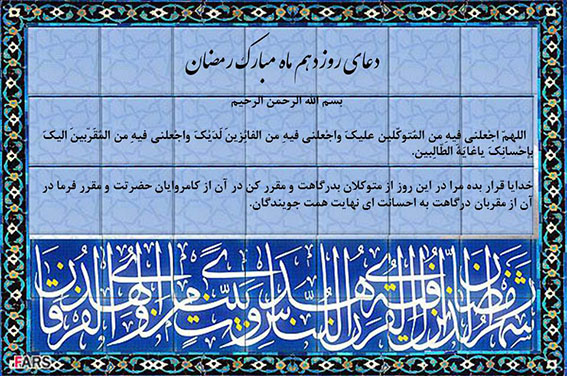 دعای روز دهم ماه مبارک رمضان
بسم الله الرحمن الرحیم
اللهمّ اجْعلني فيهِ من المُتوكّلين عليكَ واجْعلني فيهِ من الفائِزينَ لَدَيْكَ واجْعلني فيهِ من المُقَرّبينَ اليكَ
بإحْسانِكَ ياغايَةَ الطّالِبين.
خدایا قرار بده مرا در این روز از متوکلان بدرگاهت و مقرر کن در آن از کامروایان حضرتت و مقرر فرما در
آن از مقربان درگاهت به احسانت ای نهایت همت جویندگان.
شهر رمضان الذی انزل فیه القرآن هدی للناس و بینت من الهدی و الفرقان
FARS